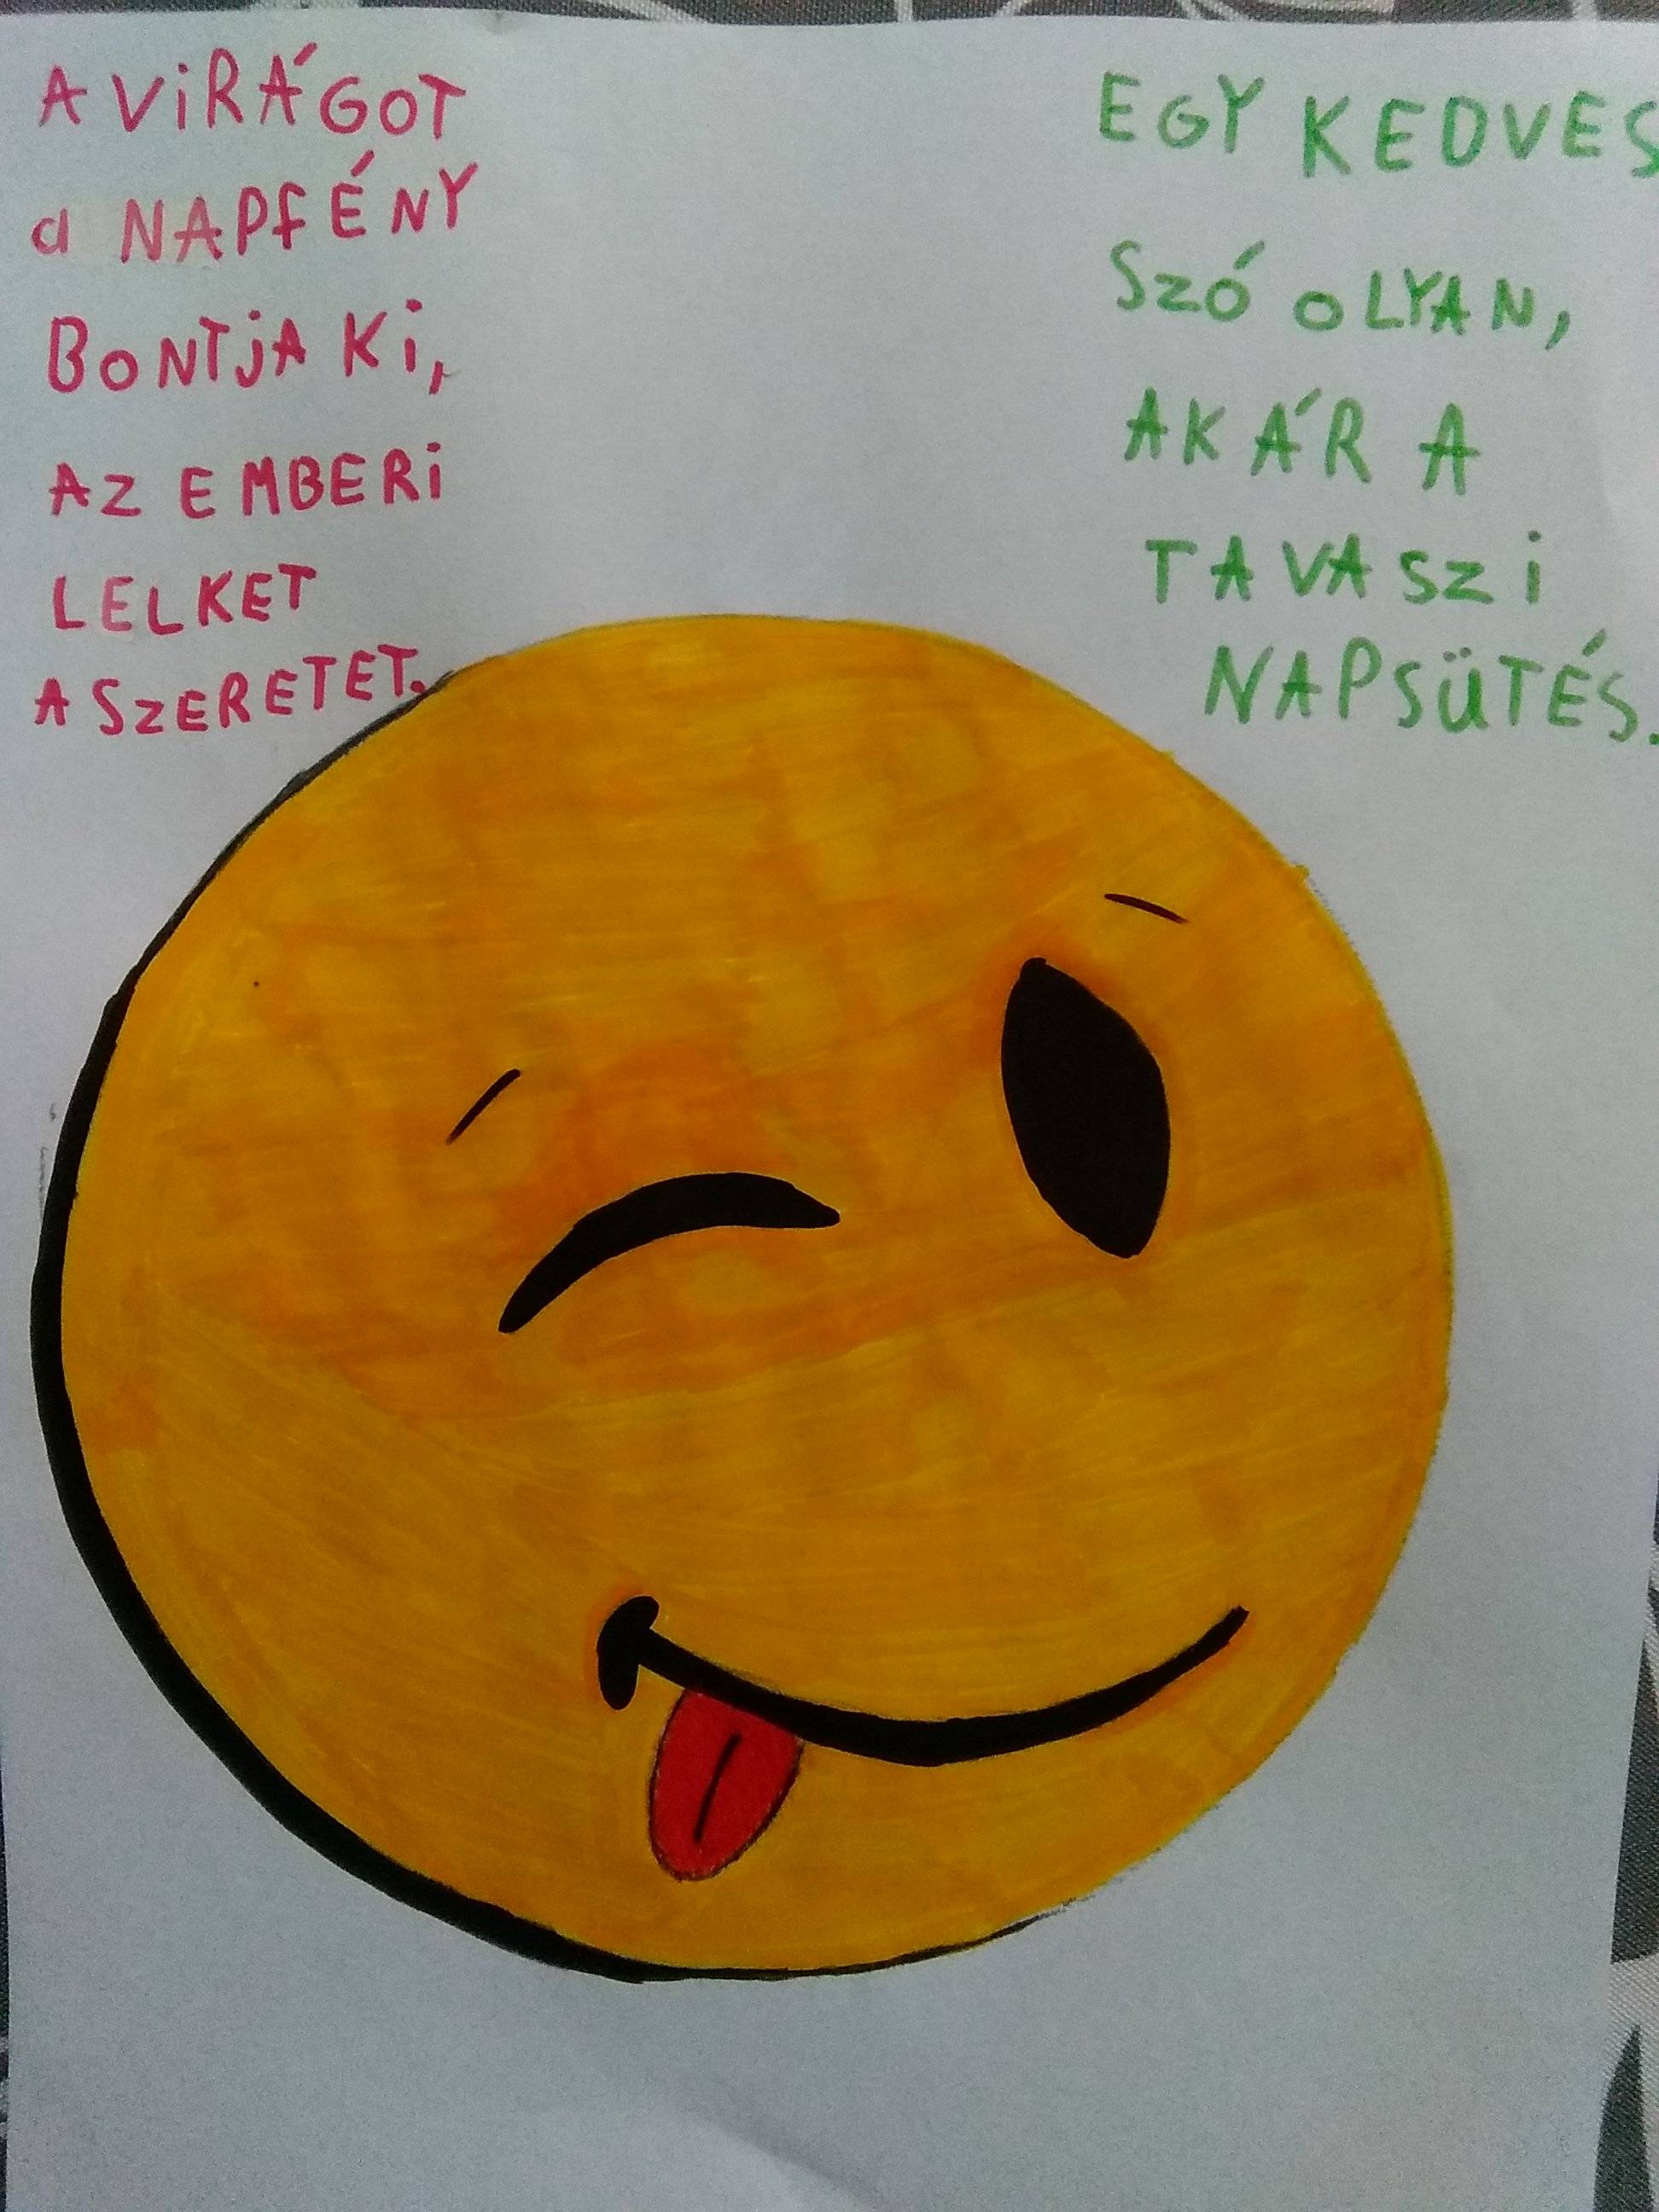 A ViRÁGOT
a NAPFÉNY
BONTjA Ki,
AZ EMBERi
LELKET
A SZERETET.
EGY KEDVES
SZÓ OLYAN,
AKÁR A
TAVASZi
NAPSÜTÉS.